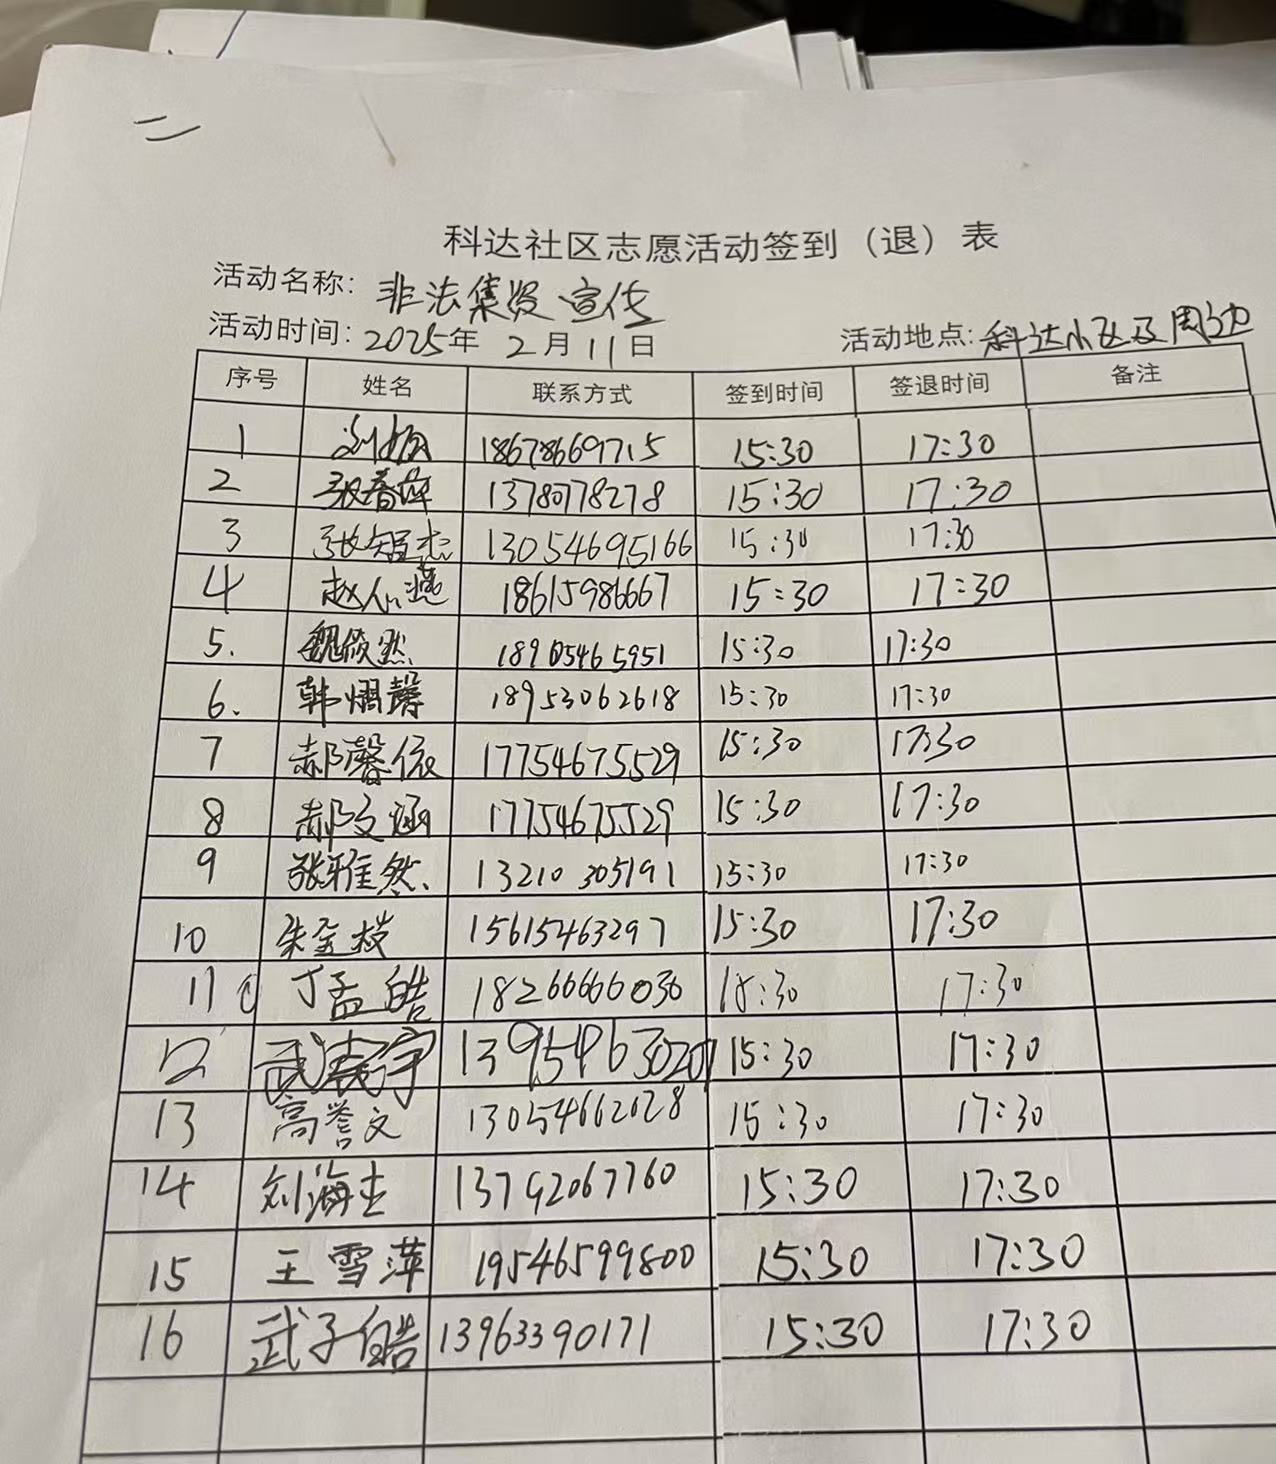 二
科达社区志愿活动签到（退）表
活动名称：非法集资宣传
活动时间：2025年 2月11日 活动地点：科达小区及周边
序号 姓名 联系方式 签到时间 签退时间 备注
1 刘 18678669715 15:30 17:30
2 张春萍 13780778278 15:30 17:30
3 张智杰 13054695166 15:30 17:30
4 赵心燕 18615986667 15:30 17:30
5. 魏筱然 18905465951 15:30 17:30
6. 韩熠馨 18953062618 15:30 17:30
7 郝馨依 17754675529 15:30 17:30
8 郝文涵 17754675529 15:30 17:30
9 张雅然 13210305191 15:30 17:30
10 朱金枝 15615463297 15:30 17:30
11 丁孟皓 18266666036 15:30 17:30
12 武宇 13954963020 15:30 17:30
13 高誉文 13054662628 15:30 17:30
14 刘海生 13792067760 15:30 17:30
15 王雪萍 19546599800 15:30 17:30
16 武子皓 13963390171 15:30 17:30